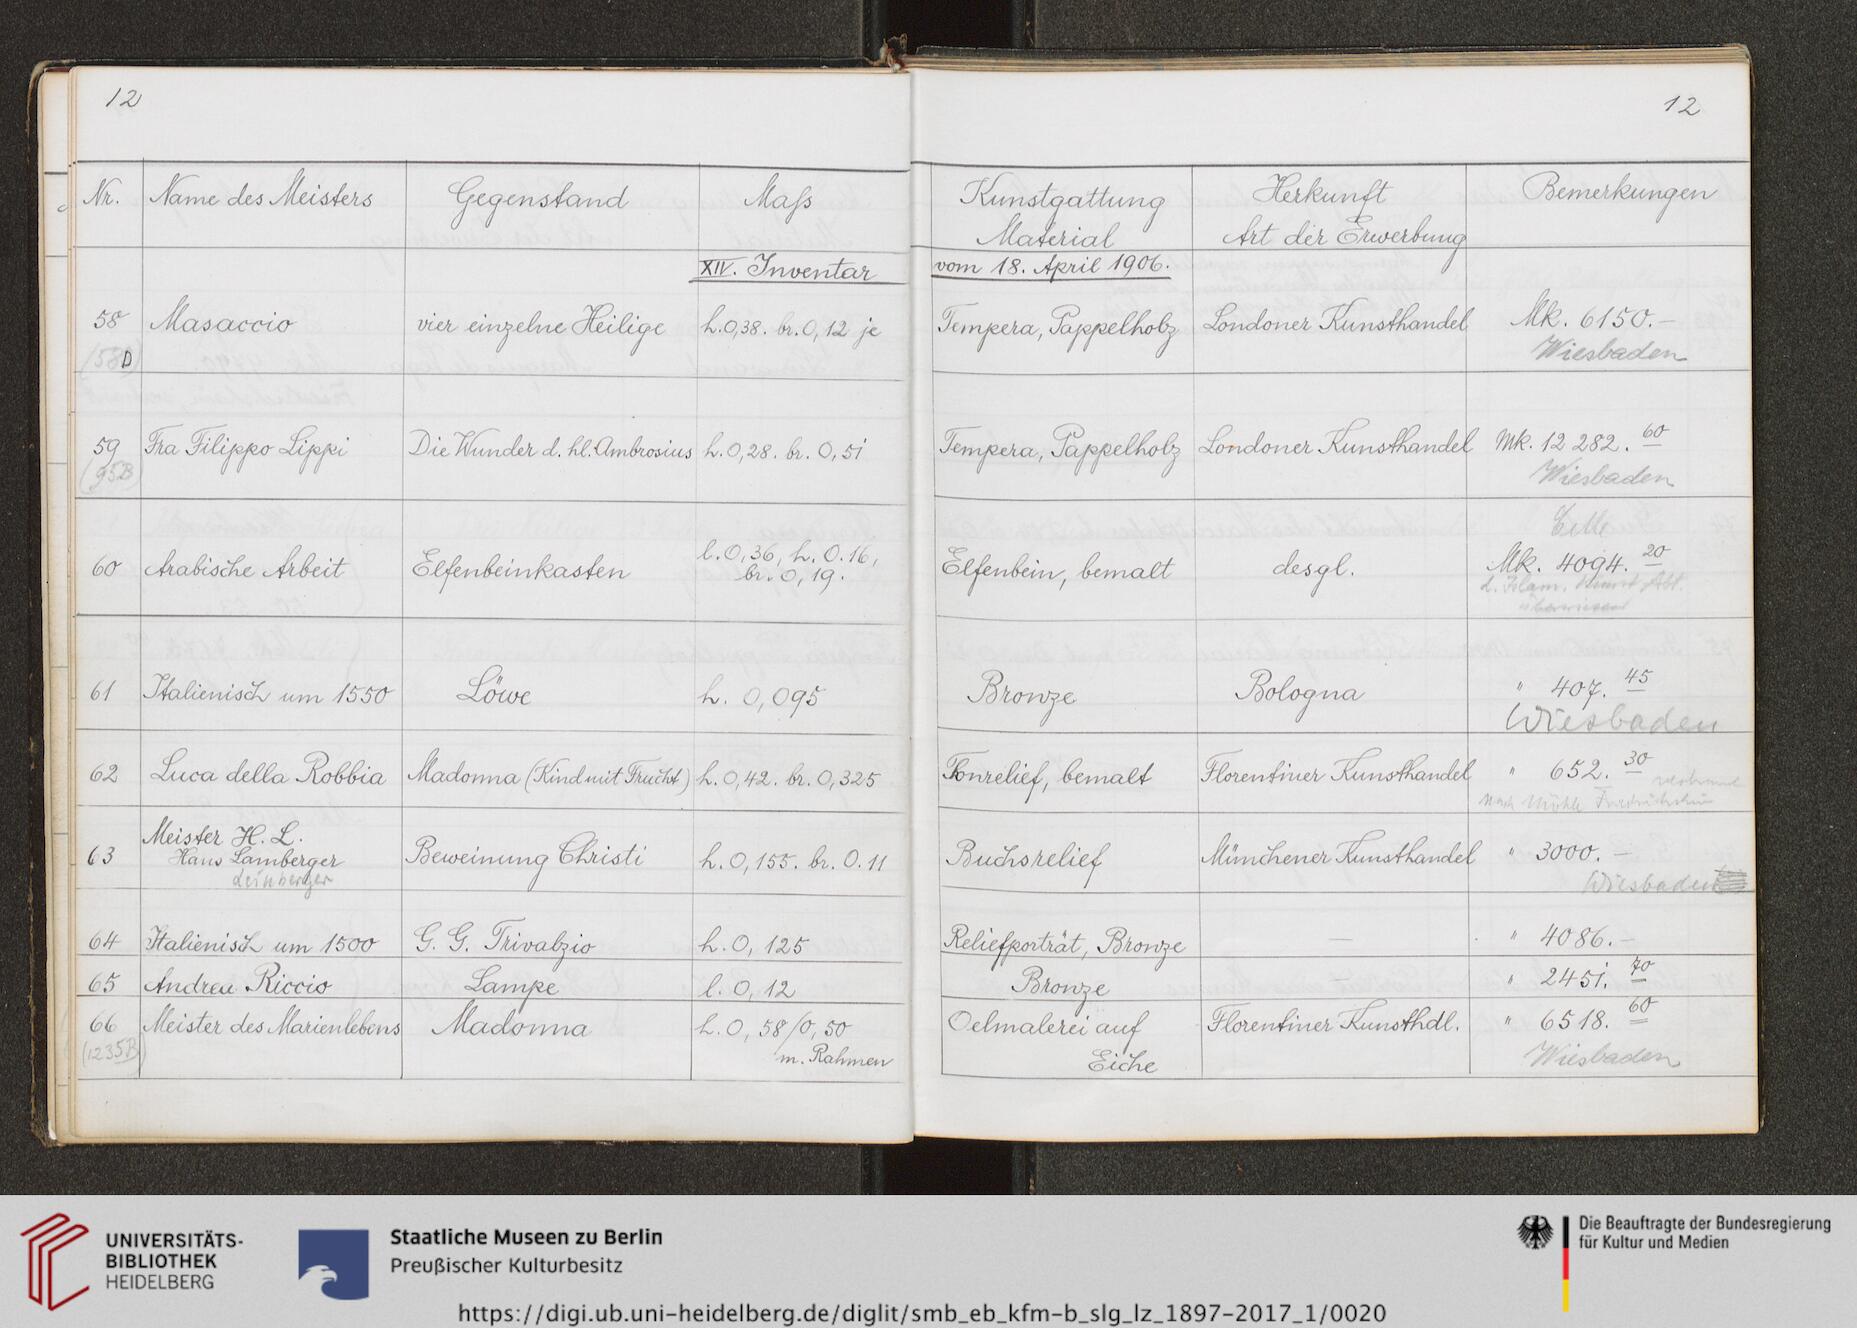 12
12
Nr. Name des Meisters Gegenstand Mass Kunstgattung Material Herkunft Art der Erwerbung Bemerkungen
XIV. Inventar vom 18. April 1906.
58 Masaccio vier einzelne Heilige h. 0,38. br. 0,12 je Tempera, Pappelholz Londoner Kunsthandel Mk. 6150.—
(58D) Wiesbaden
59 Fra Filippo Lippi Die Wunder d. hl. Ambrosius h. 0,28. br. 0,51 Tempera, Pappelholz Londoner Kunsthandel Mk. 12 282. 60
(95B) Wiesbaden
Celle
60 Arabische Arbeit Elfenbeinkasten l. 0,36, h. 0.16, br. 0,19. Elfenbein, bemalt desgl. Mk. 4094. 20
d. Islam. Kunst Abt.
überwiesen
61 Italienisch um 1550 Löwe h. 0,095 Bronze Bologna " 407. 45
Wiesbaden
62 Luca della Robbia Madonna (Kind mit Frucht) h. 0,42. br. 0,325 Tonrelief, bemalt Florentiner Kunsthandel " 652. 30
nach Möhle Friedrichshain
Meister H. L.
63 Hans Lamberger Beweinung Christi h. 0,155. br. 0.11 Buchsrelief Münchener Kunsthandel " 3000.—
Leinberger Wiesbaden
64 Italienisch um 1500 G. G. Trivalzio h. 0,125 Reliefporträt, Bronze — " 4086.—
65 Andrea Riccio Lampe l. 0,12 Bronze " 2451. 70
66 Meister des Marienlebens Madonna h. 0,58/0,50 Oelmalerei auf Florentiner Kunsthdl. " 6518. 60
(1235B) m. Rahmen Eiche Wiesbaden
UNIVERSITÄTS-
BIBLIOTHEK
HEIDELBERG
Staatliche Museen zu Berlin
Preußischer Kulturbesitz
Die Beauftragte der Bundesregierung
für Kultur und Medien
https://digi.ub.uni-heidelberg.de/diglit/smb_eb_kfm-b_slg_lz_1897-2017_1/0020